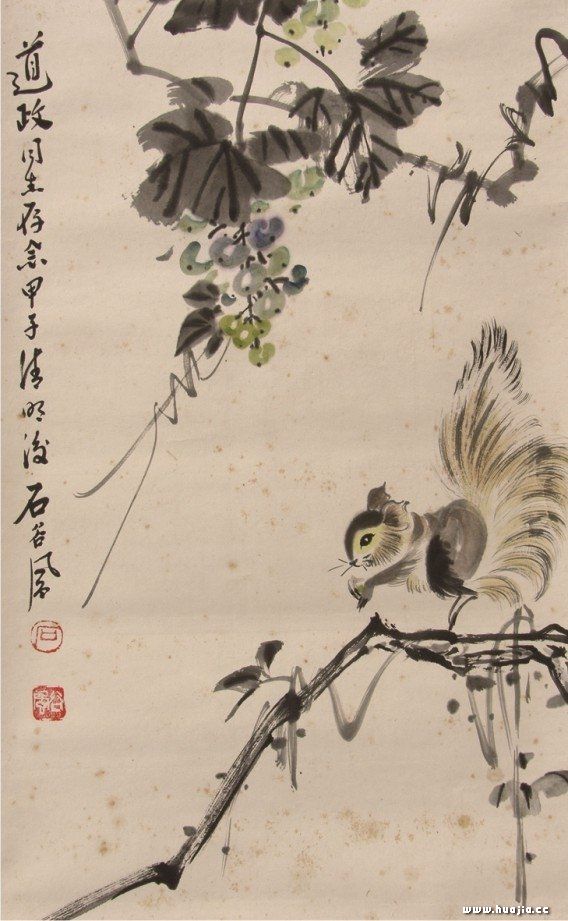 道政同志存念甲子清明後石谷風
石
www.huajia.cc